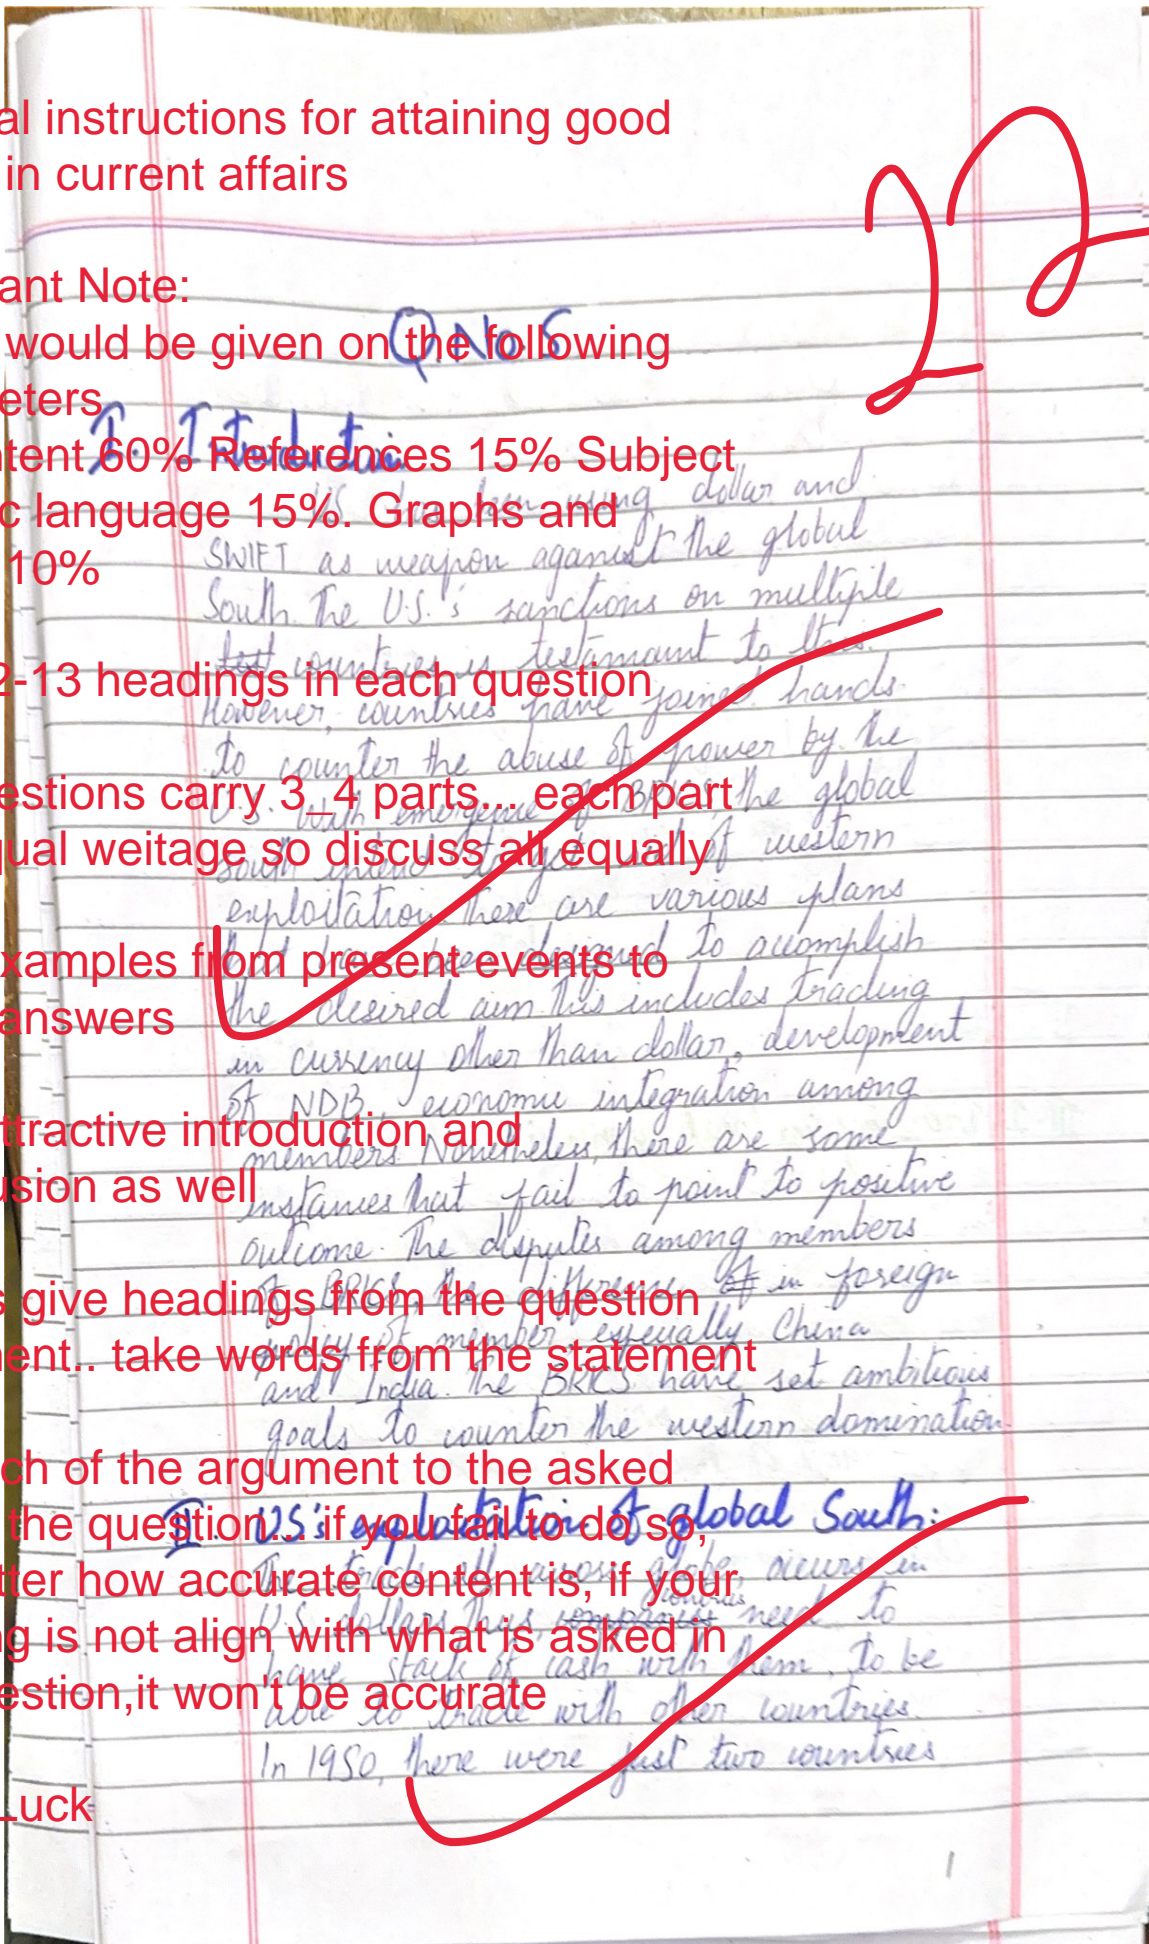 al instructions for attaining good
in current affairs
ant Note:
would be given on the following
eters
tent 60% References 15% Subject
c language 15%. Graphs and
10%
2-13 headings in each question
estions carry 3_4 parts... each part
qual weitage so discuss all equally
xamples from present events to
answers
ttractive introduction and
usion as well
s give headings from the question
ent.. take words from the statement
ch of the argument to the asked
the question... if you fail to do so,
tter how accurate content is, if your
g is not align with what is asked in
estion,it won't be accurate
Luck
22
Q.No.5
I. Introduction
US has been using dollar and
SWIFT as weapon against the global
South. The U.S.'s sanctions on multiple
countries is testamaunt to this.
However, countries have joined hands
to counter the abuse of power by the
U.S. With emergence of BRICS, the global
south intend to get rid of western
exploitation. There are various plans
that have been designed to accomplish
the desired aim. This includes trading
in currency other than dollar, development
of NDB, economic integration among
members. Nonetheless, there are some
instances that fail to point to positive
outcome. The disputes among members
of BRICS, the difference in foreign
policy of member, especially China
and India. The BRICS have set ambitious
goals to counter the western domination.
II. US's exploitation of global South:
The trade all across globe, occurs in
U.S. dollars. Thus, countries need to
have stack of cash with them, to be
able to trade with other countries.
In 1950, there were just two countries
1